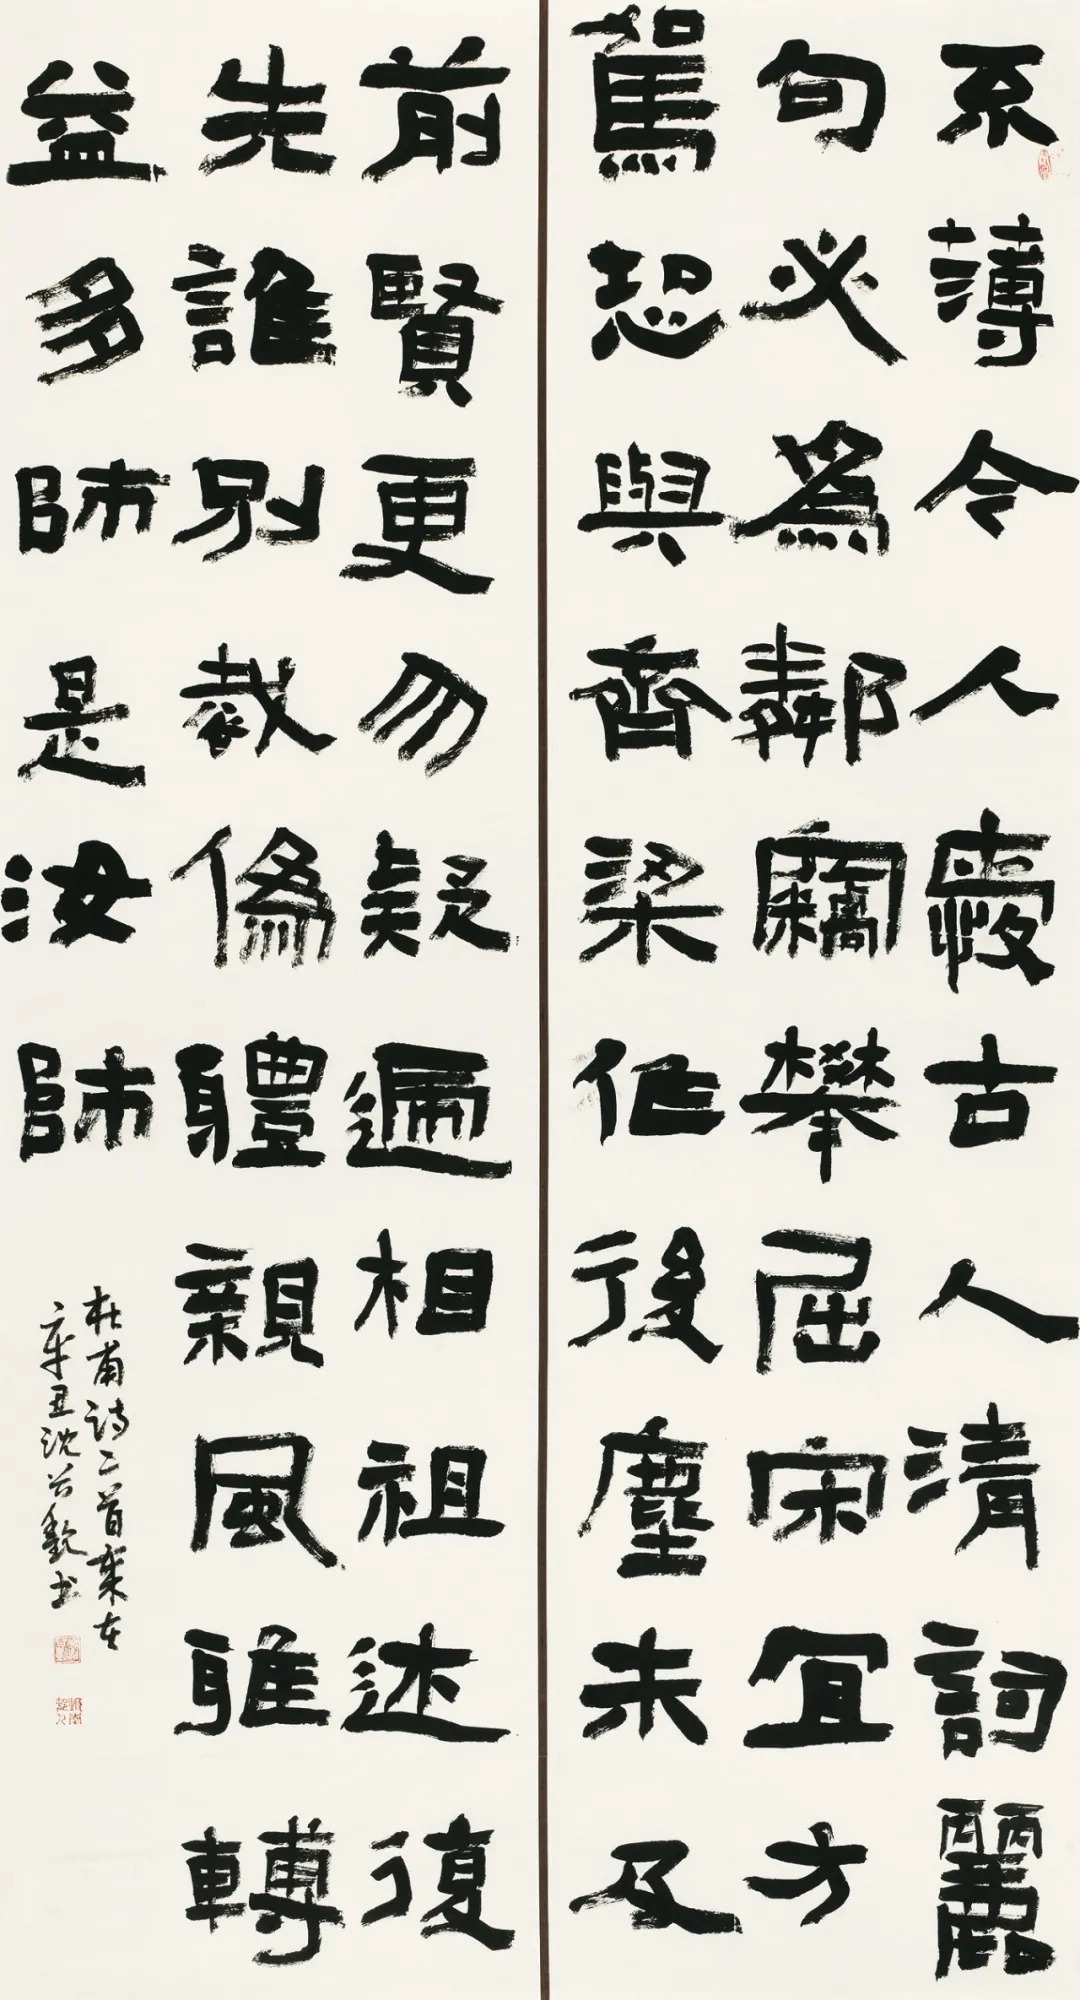 不薄今人愛古人清詞麗
句必爲鄰竊攀屈宋宜方
駕恐與齊梁作後塵未及
前賢更勿疑遞相祖述復
先誰別裁僞體親風雅轉
益多師是汝師
杜甫詩二首歲在
辛丑沈书